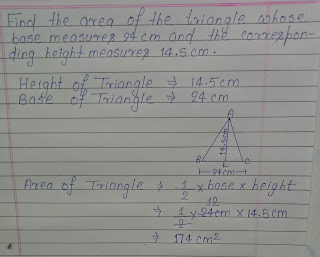 Find the area of the triangle whose
base measures 24 cm and the correspon-
ding height measures 14.5 cm.
Height of Triangle ⇒ 14.5 cm
Base of Triangle ⇒ 24 cm
A
14.5cm
B L C
24cm
Area of Triangle ⇒ 1/2 × base × height
12
⇒ 1/2 × 24cm × 14.5cm
⇒ 174 cm²